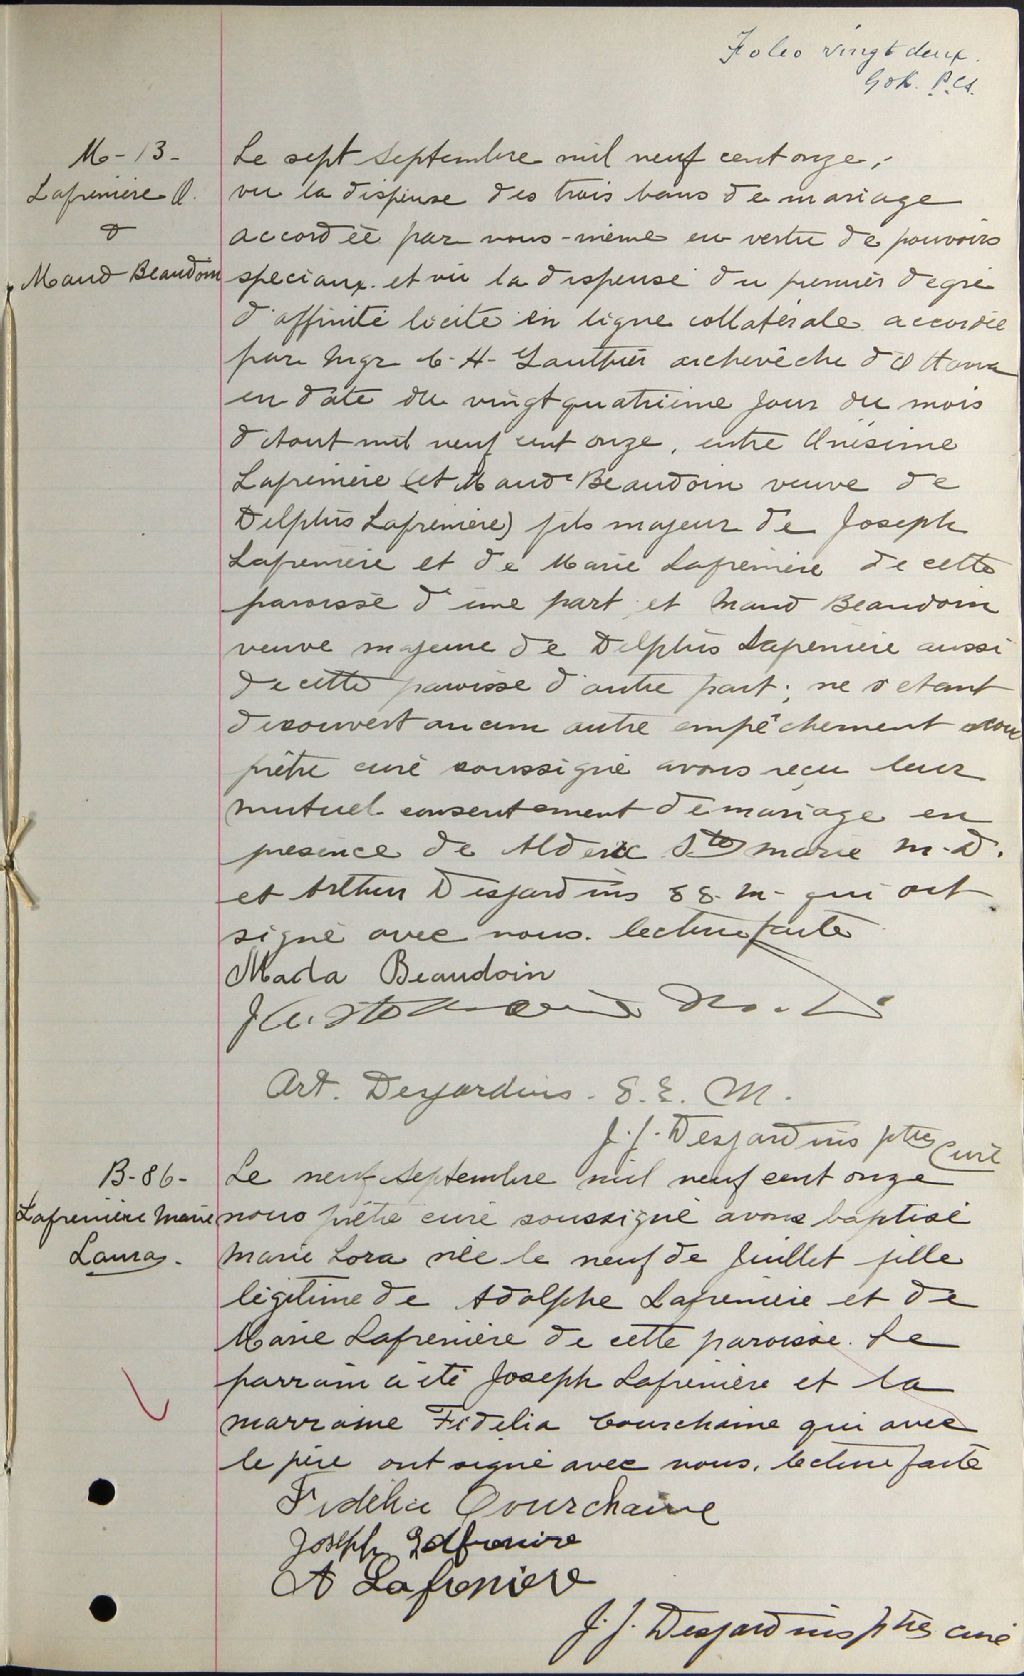 Folio vingt deux.
G.O.K. P.C.S.
M-13-
Lafrenière O.
&
Maud Beaudoin
Le sept Septembre mil neuf cent onze,
vu la dispense des trois bans de mariage
accordée par nous-même en vertu de pouvoirs
speciaux et vu la dispense du premier degré
d'affinité licite en ligne collatérale accordée
par Mgr C-H-Gauthier archevêche d'Ottawa
en date du vingt quatrième jour du mois
d'Aout mil neuf cent onze, entre Onésime
Lafrenière (et Maud Beaudoin veuve de
Delphis Lafrenière) fils majeur de Joseph
Lafrenière et de Marie Lafrenière de cette
paroisse d'une part, et Maud Beaudoin
veuve majeure de Delphis Lafrenière aussi
de cette paroisse d'autre part; ne s'etant
decouvert aucun autre empêchement nous
prêtre curé soussigné avons reçu leur
mutuel consentement de mariage en
presence de Alderic Ste Marie M.D.
et Arthur Desjardins E.E.M- qui ont
signé avec nous. lecture faite
Mada Beaudoin
Art. Desjardins. E.E.M.
J.J. Desjardins ptre
curé
B-86-
Lafrenière Marie
Laura.
Le neuf Septembre mil neuf cent onze
nous prêtre curé soussigné avons baptisé
Marie Lora née le neuf de Juillet fille
légitime de Adolphe Lafrenière et de
Marie Lafrenière de cette paroisse. Le
parrain a été Joseph Lafrenière et la
marraine Fidelia Courchaine qui avec
le père ont signé avec nous. lecture faite
Fidélia Courchaine
Joseph Lafreniere
A Lafreniere
J.J. Desjardins ptre curé